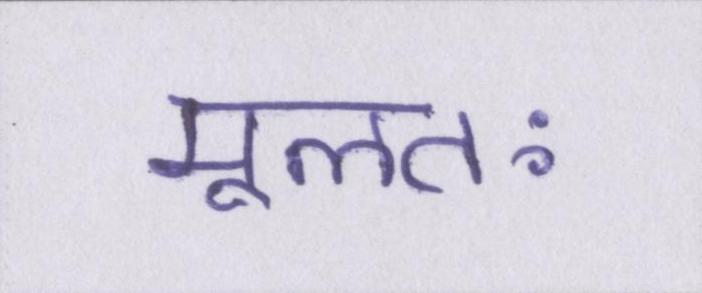 मूलतः